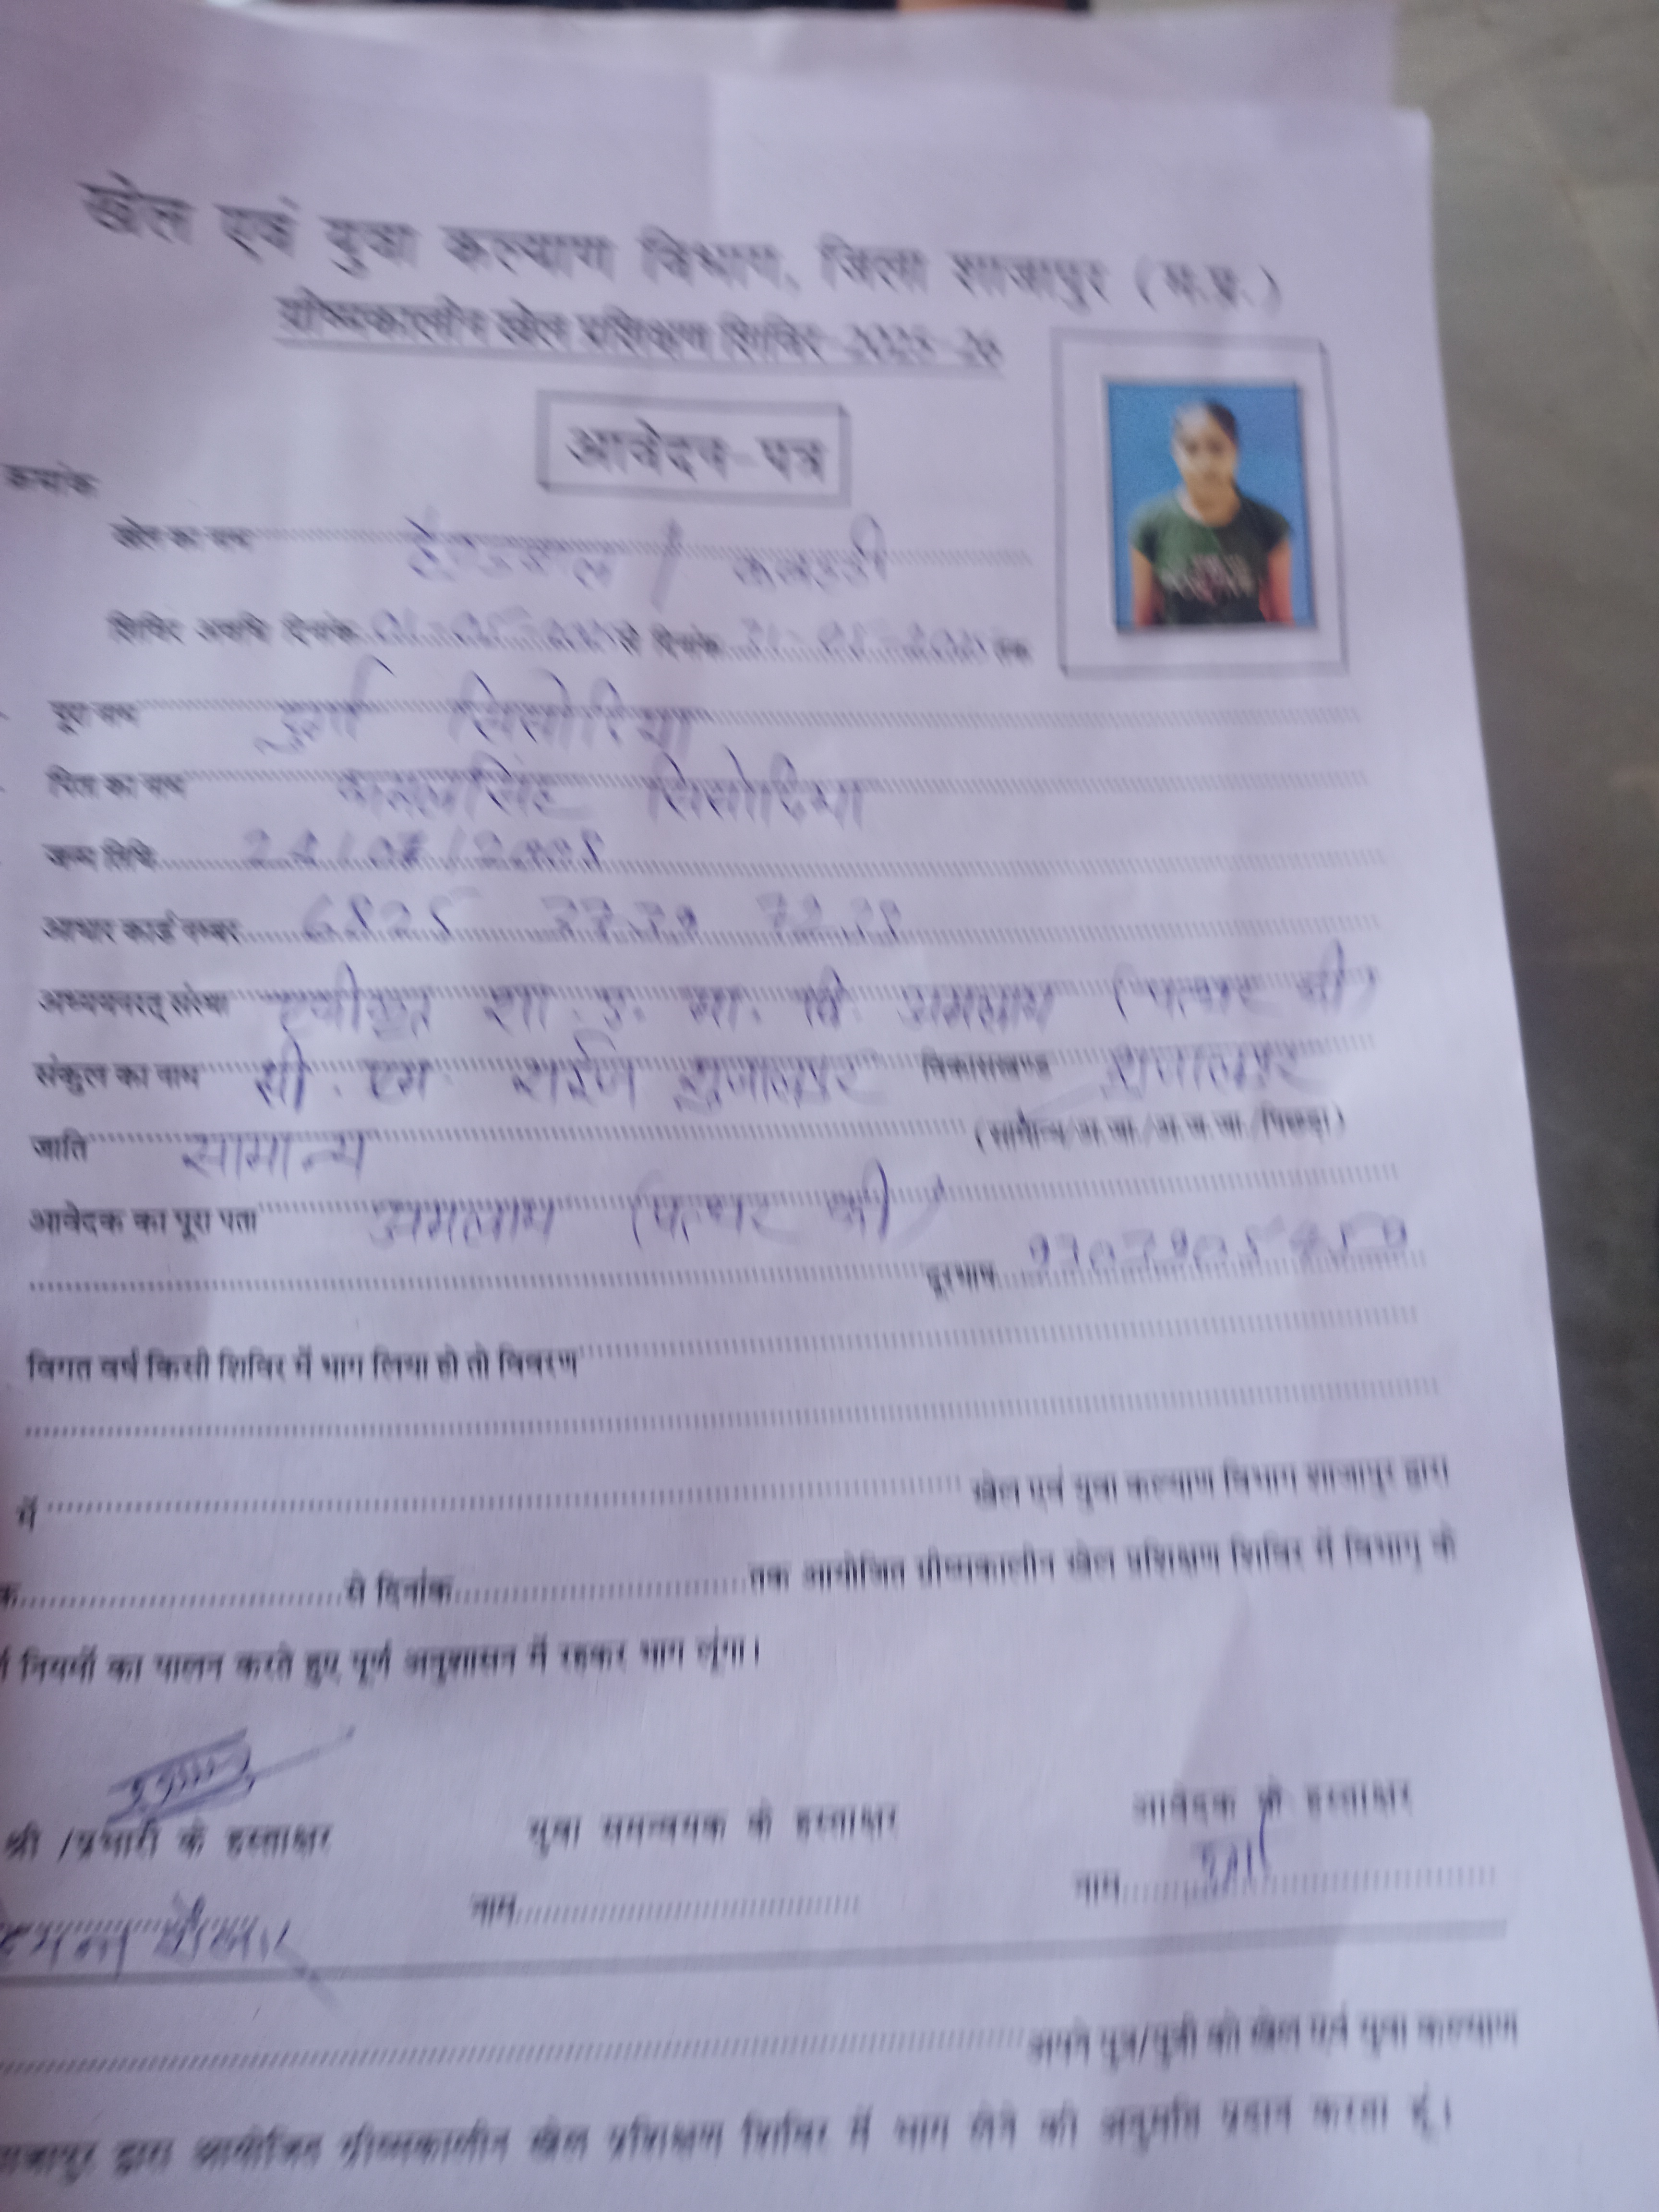 खेल एवं युवा कल्याण विभाग, जिला शाजापुर (म.प्र.)
ग्रीष्मकालीन खेल प्रशिक्षण शिविर 2025-26
आवेदन-पत्र
क्रमांक
खेल का नाम हैण्डबाल / कबड्डी
शिविर अवधि दिनांक 01-05-2025 से दिनांक 31-05-2025 तक
पूरा नाम दुर्गा सिसोदिया
पिता का नाम कमलसिंह सिसोदिया
जन्म तिथि 24/07/2008
आधार कार्ड नम्बर 6825
अध्ययनरत् संस्था एकीकृत शा. ए. मा. वि. अमलाय
संकुल का नाम सी. एम राईज शुजालपुर विकासखण्ड शुजालपुर
जाति सामान्य (सामान्य/अ.जा./अ.ज.जा./पिछड़ा)
आवेदक का पूरा पता अमलाय
दूरभाष
विगत वर्ष किसी शिविर में भाग लिया हो तो विवरण
में खेल एवं युवा कल्याण विभाग शाजापुर द्वारा
से दिनांक तक आयोजित ग्रीष्मकालीन खेल प्रशिक्षण शिविर में विभाग के
नियमों का पालन करते हुए पूर्ण अनुशासन में रहकर भाग लूंगा।
श्री /प्रभारी के हस्ताक्षर युवा समन्वयक के हस्ताक्षर आवेदक के हस्ताक्षर
नाम नाम दुर्गा
अपने पुत्र/पुत्री को खेल एवं युवा कल्याण
द्वारा आयोजित ग्रीष्मकालीन खेल प्रशिक्षण शिविर में भाग लेने की अनुमति प्रदान करता हूं।